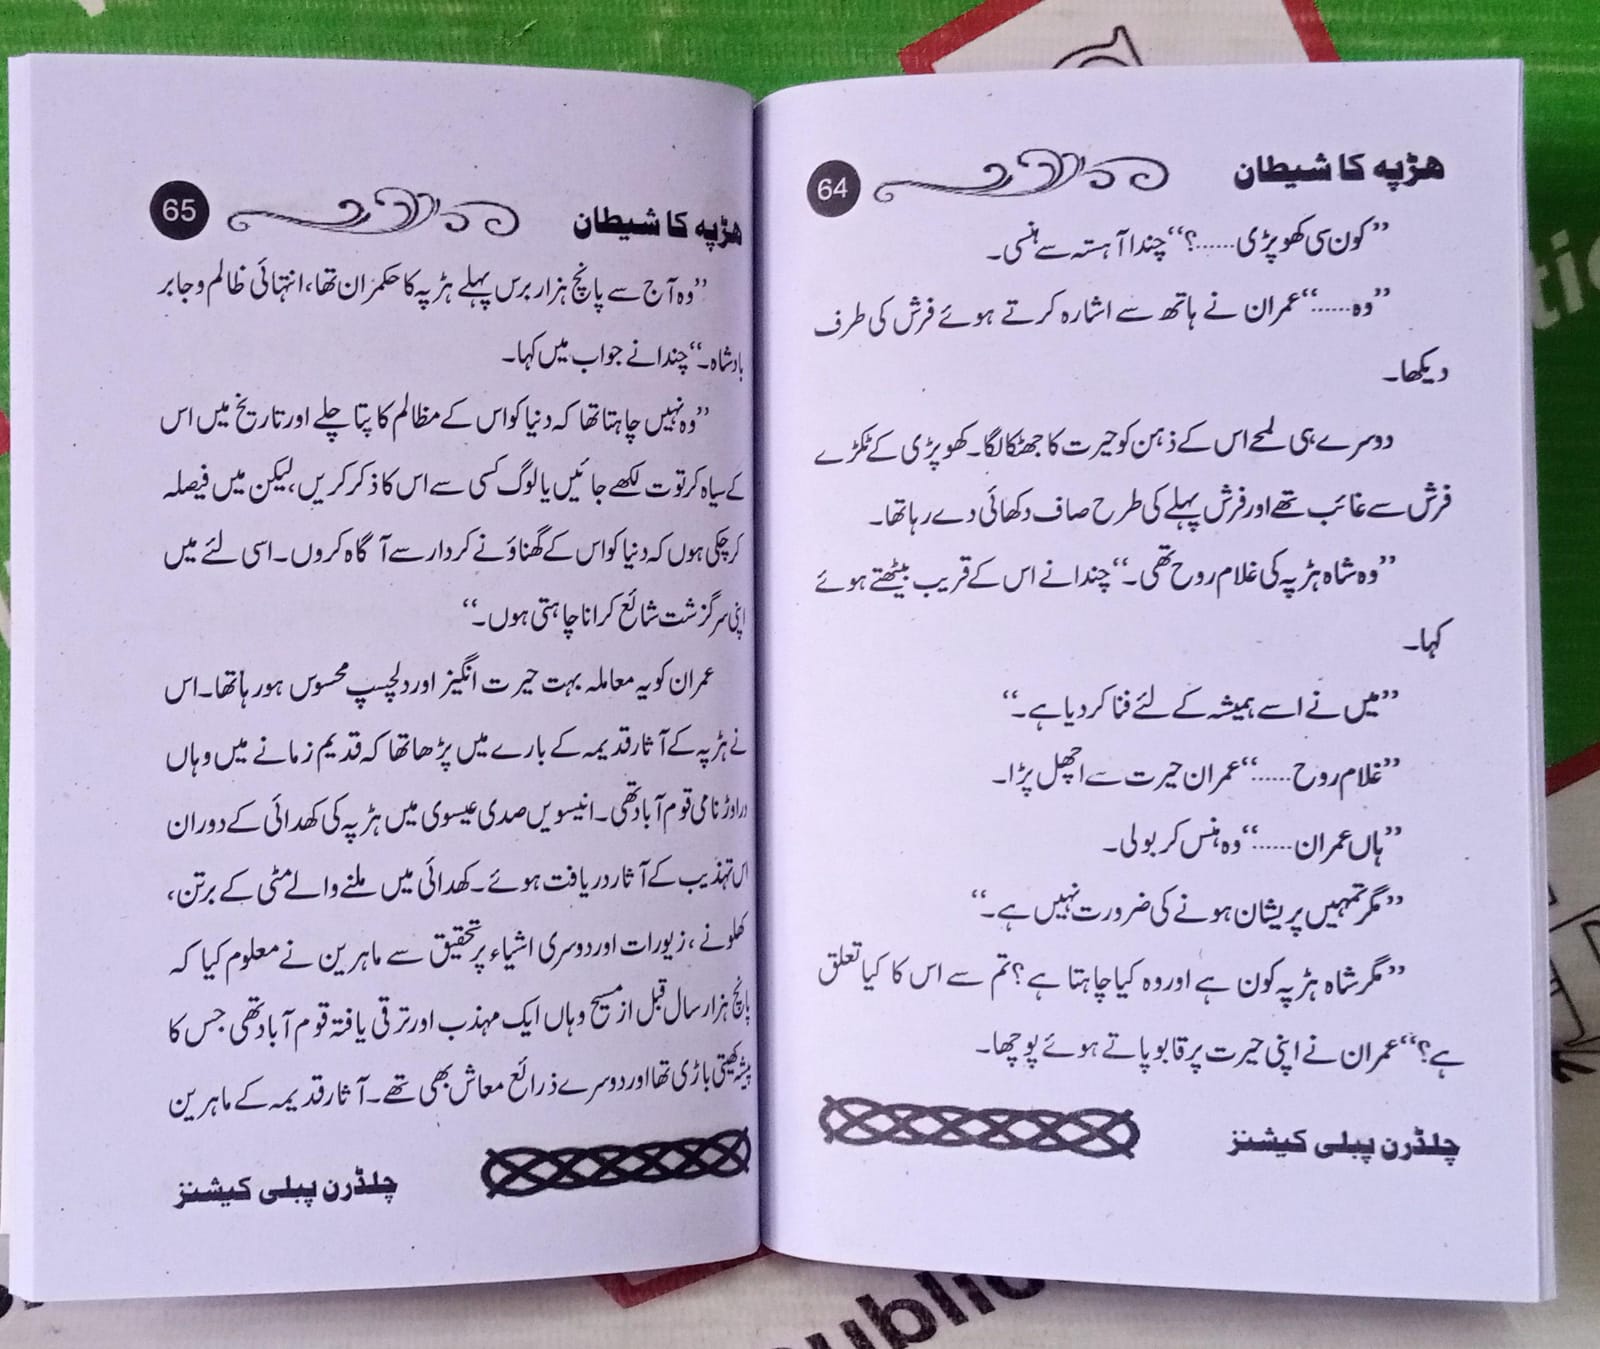 ھڑپہ کا شیطان
64
’’کون سی کھوپڑی......؟‘‘ چندا آہستہ سے ہنسی۔
’’وہ......‘‘ عمران نے ہاتھ سے اشارہ کرتے ہوئے فرش کی طرف
دیکھا۔
دوسرے ہی لمحے اس کے ذہن کو حیرت کا جھٹکا لگا۔ کھوپڑی کے ٹکڑے
فرش سے غائب تھے اور فرش پہلے کی طرح صاف دکھائی دے رہا تھا۔
’’وہ شاہ ہڑپہ کی غلام روح تھی۔‘‘ چندا نے اس کے قریب بیٹھتے ہوئے
کہا۔
’’میں نے اسے ہمیشہ کے لئے فنا کر دیا ہے۔‘‘
’’غلام روح......‘‘ عمران حیرت سے اچھل پڑا۔
’’ہاں عمران......‘‘ وہ ہنس کر بولی۔
’’مگر تمہیں پریشان ہونے کی ضرورت نہیں ہے۔‘‘
’’مگر شاہ ہڑپہ کون ہے اور وہ کیا چاہتا ہے؟ تم سے اس کا کیا تعلق
ہے؟‘‘ عمران نے اپنی حیرت پر قابو پاتے ہوئے پوچھا۔
چلڈرن پبلی کیشنز
ھڑپہ کا شیطان
65
’’وہ آج سے پانچ ہزار برس پہلے ہڑپہ کا حکمران تھا، انتہائی ظالم و جابر
بادشاہ۔‘‘ چندا نے جواب میں کہا۔
’’وہ نہیں چاہتا تھا کہ دنیا کو اس کے مظالم کا پتا چلے اور تاریخ میں اس
کے سیاہ کرتوت لکھے جائیں یا لوگ کسی سے اس کا ذکر کریں، لیکن میں فیصلہ
کر چکی ہوں کہ دنیا کو اس کے گھناؤنے کردار سے آگاہ کروں۔ اسی لئے میں
اپنی سرگزشت شائع کرانا چاہتی ہوں۔‘‘
عمران کو یہ معاملہ بہت حیرت انگیز اور دلچسپ محسوس ہو رہا تھا۔ اس
نے ہڑپہ کے آثار قدیمہ کے بارے میں پڑھا تھا کہ قدیم زمانے میں وہاں
دراوڑ نامی قوم آباد تھی۔ انیسویں صدی عیسوی میں ہڑپہ کی کھدائی کے دوران
اس تہذیب کے آثار دریافت ہوئے۔ کھدائی میں ملنے والے مٹی کے برتن،
کھلونے، زیورات اور دوسری اشیاء پر تحقیق سے ماہرین نے معلوم کیا کہ
پانچ ہزار سال قبل از مسیح وہاں ایک مہذب اور ترقی یافتہ قوم آباد تھی جس کا
پیشہ کھیتی باڑی تھا اور دوسرے ذرائع معاش بھی تھے۔ آثار قدیمہ کے ماہرین
چلڈرن پبلی کیشنز